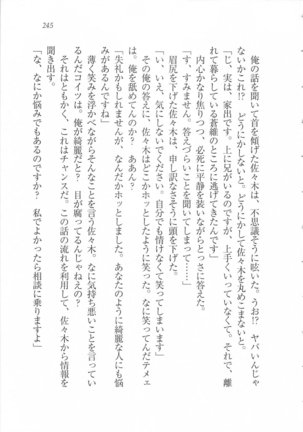 俺の話を聞いて首を傾げた佐々木は、不思議そうに呟いた。うお!? ヤバいんじゃ
ないかこれ!? どうにかしないと。どうにかして佐々木を丸めこまないと。
「じ、実は、家出です。上に兄がいるのですが、上手くいっていなくて。それで、離
れて暮らしている蒼維のところに逃げてきたんです」
内心かなり焦りつつ、必死に平静を装いながらとっさに答えた。
「す、すみません。答えづらいことを聞いてしまって……」
眉尻を下げた佐々木は、申し訳なさそうに頭を下げた。
「い、いえ、気にしないでください。自分でも情けなくて笑ってしまいます」
その俺の答えに、佐々木はどこかホッとしたように笑った。なに笑ってんだテメェ
は。俺を舐めてんのか? ああん?
「失礼かもしれませんが、なんだかホッとしました。あなたのように綺麗な人にも悩
みがあるんですね」
薄く笑みを浮かべながらそんなことを言う佐々木。なに気持ち悪いことを言って
るんだコイツは。俺が綺麗だと? 目が腐ってるんじゃねえの?
それはともかく、これはチャンスだ。この話の流れを利用して、佐々木から情報を
聞き出す。
「な、なにか悩みでもあるんですか? 私でよかったら相談に乗りますよ」
245